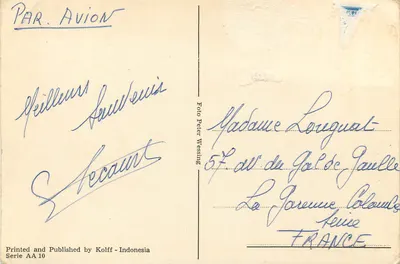 PAR AVION
Meilleurs
Souvenirs
Foto Peter Wessing
Madame Longuat
57 av du Gal de Gaulle
La Garenne Colombes
Seine
FRANCE
Printed and Published by Kolff - Indonesia
Serie AA 10